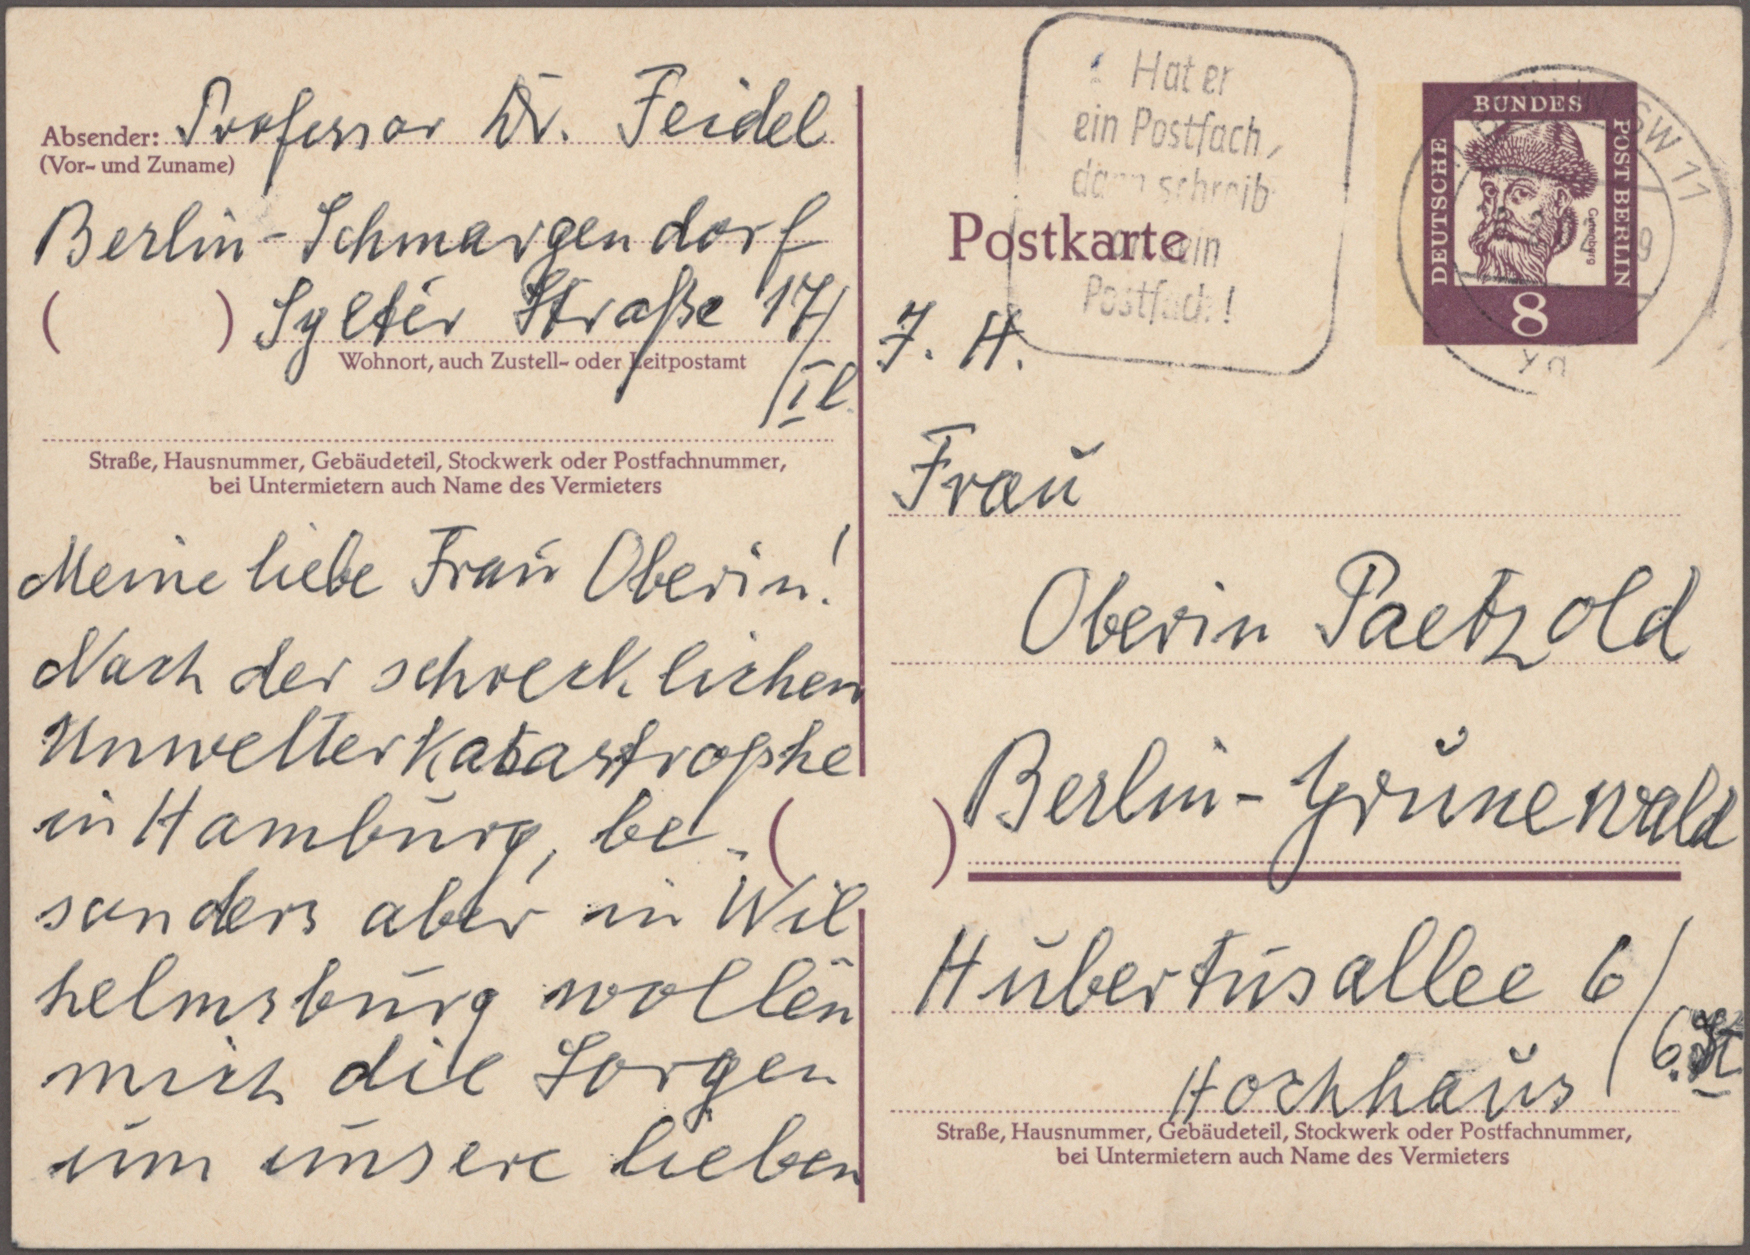 Absender: Professor Dr. Feidel
(Vor- und Zuname)
Berlin-Schmargendorf
( ) Sylter Straße 17/
Wohnort, auch Zustell- oder Leitpostamt
/II.
Straße, Hausnummer, Gebäudeteil, Stockwerk oder Postfachnummer,
bei Untermietern auch Name des Vermieters
Meine liebe Frau Oberin!
Nach der schrecklichen
Unwetterkatastrophe
in Hamburg, be-
sonders aber in Wil
helmsburg wollen
mich die Sorgen
um unsere lieben
Hat er
ein Postfach,
dann schreib
ein
Postfach!
Postkarte
DEUTSCHE
BUNDES
POST BERLIN
Gutenberg
8
SW 11
I. H.
Frau
Oberin Paetzold
( ) Berlin-Grünewald
Hubertusallee 6/
6. St
Hochhaus
Straße, Hausnummer, Gebäudeteil, Stockwerk oder Postfachnummer,
bei Untermietern auch Name des Vermieters